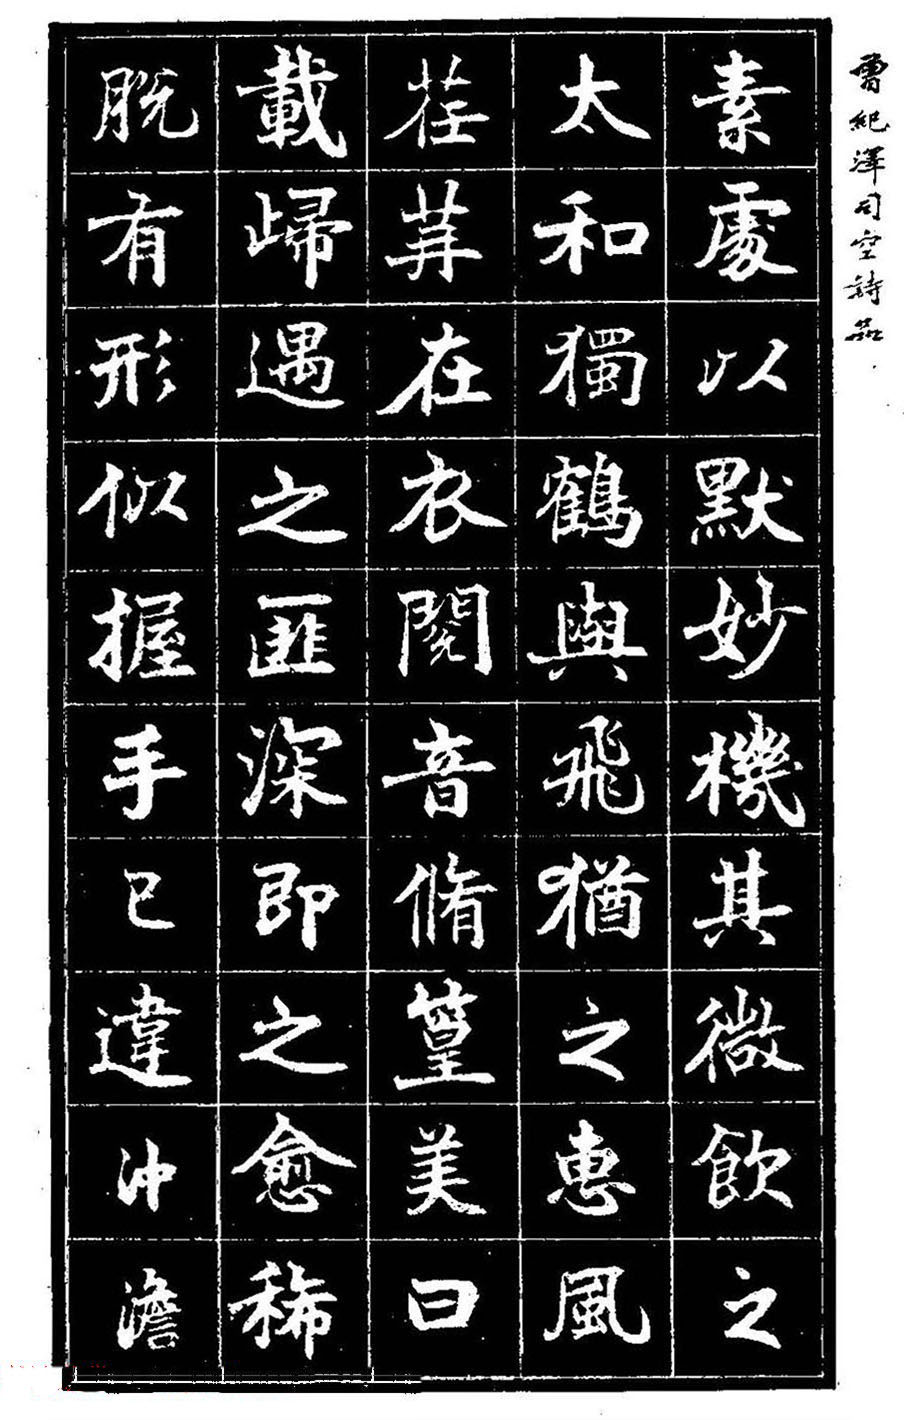 曾紀澤司空詩品
素處以默妙機其微飲之
太和獨鶴與飛猶之惠風
荏苒在衣閱音脩篁美曰
載歸遇之匪深即之愈稀
脫有形似握手已違沖澹